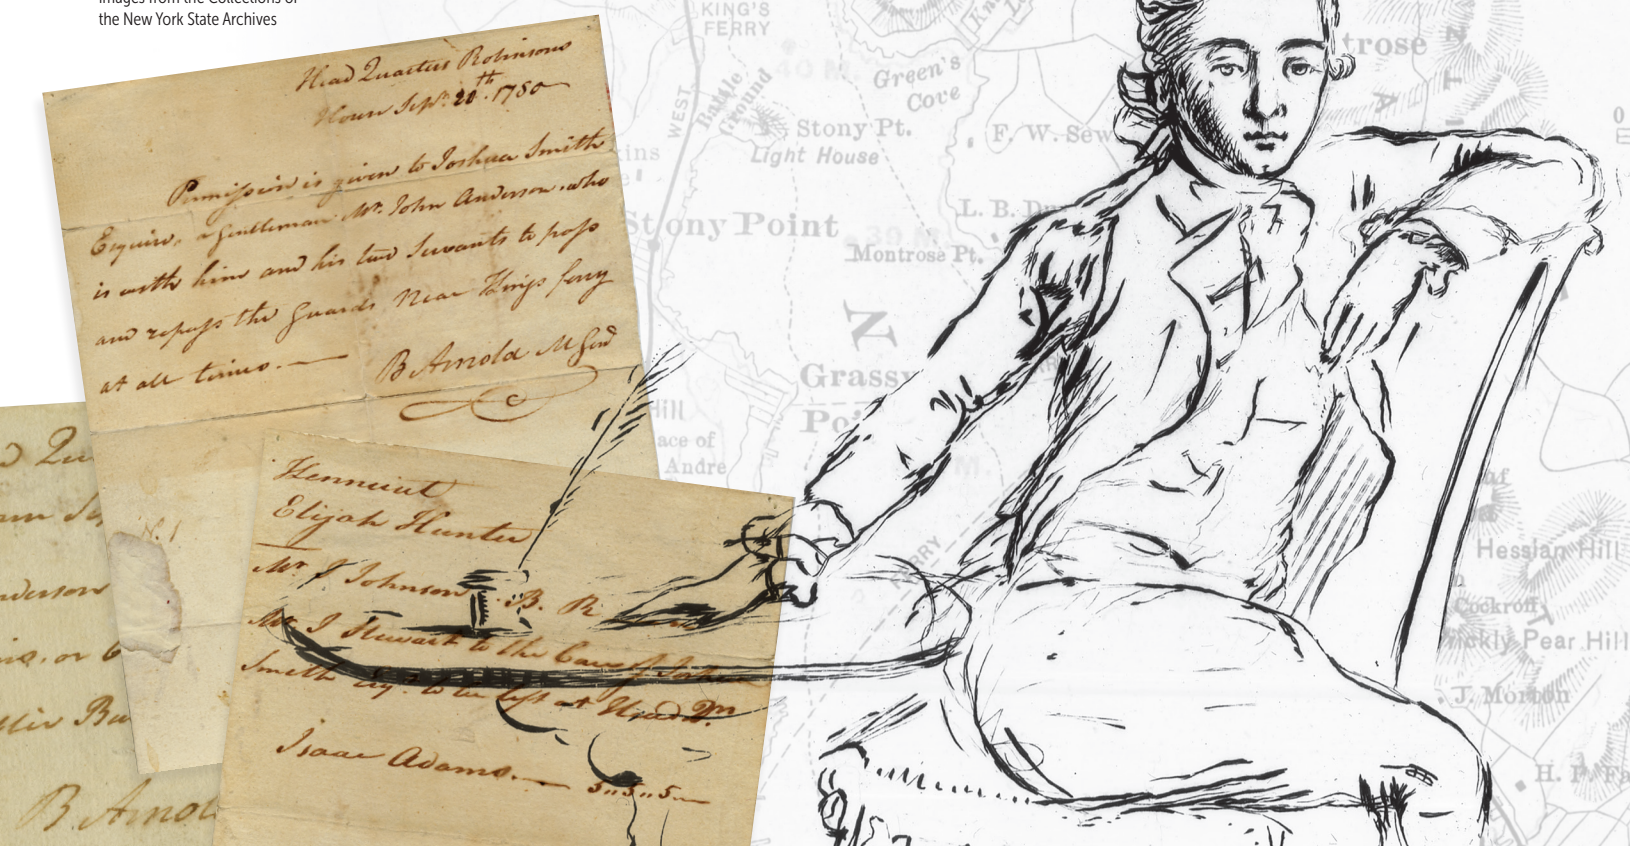 Images from the Collections of
the New York State Archives
Head Quarters Robinsons
House Sepr. 20th. 1780
Permission is given to Joshua Smith
Esquire, a gentleman Mr. John Anderson who
is with him and his two Servants to pass
and repass the Guards Near Kings ferry
at all times.
B Arnold M Genl
N. 1
Hennieut
Elijah Hunter
Mr J Johnson B. R
Mr J Stewart to the Care of Joshua
Smith Esqr. to be left at Head Qrs
Isaac Adams. 5..5..5
nderson
or
B Arnol
KING'S
FERRY
40 M.
Green's
Cove
trose
WEST
Battle
Ground
Stony Pt.
Light House
F. W. Sew
kins
Stony Point
L. B. D
39 M.
Montrose Pt.
N
Grassy
Po
Hill
ace of
Andre
M.
Hessian Hill
Cockroft
ickly Pear Hill
J. Morton
H. P. Fa